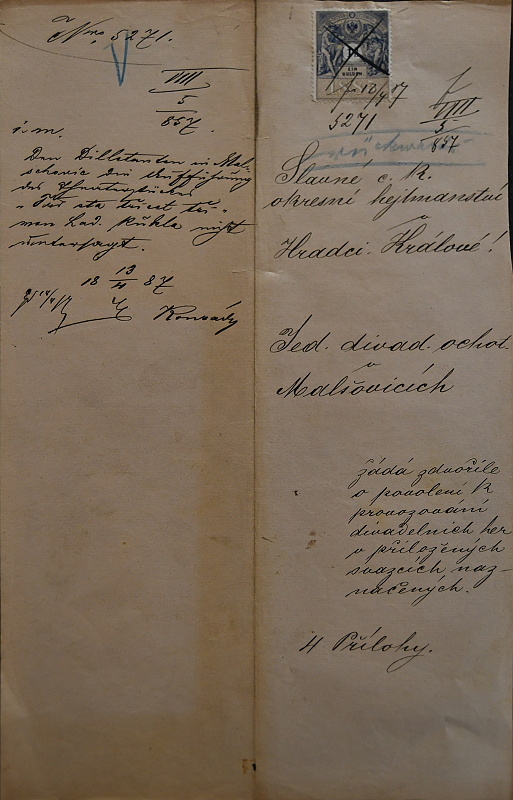 Nro 5271.
VIII
5
857.
i. m.
Den Dilletanten in Mal-
schovic die Aufführung
des Theaterstückes
"Pod sto tisíc
von Lad. nicht
untersagt.
18 13/4 87
Konrády
EIN
GULDEN
12/4 87
5271
VIII
5
857
Slavné c. k.
okresní hejtmanství
v
Hradci Králové!
Jed. divad. ochot.
v
Malšovicích
žádá zdvořile
o povolení k
provozování
divadelních her
v přiložených
svazcích naz-
načených.
4 Přílohy.